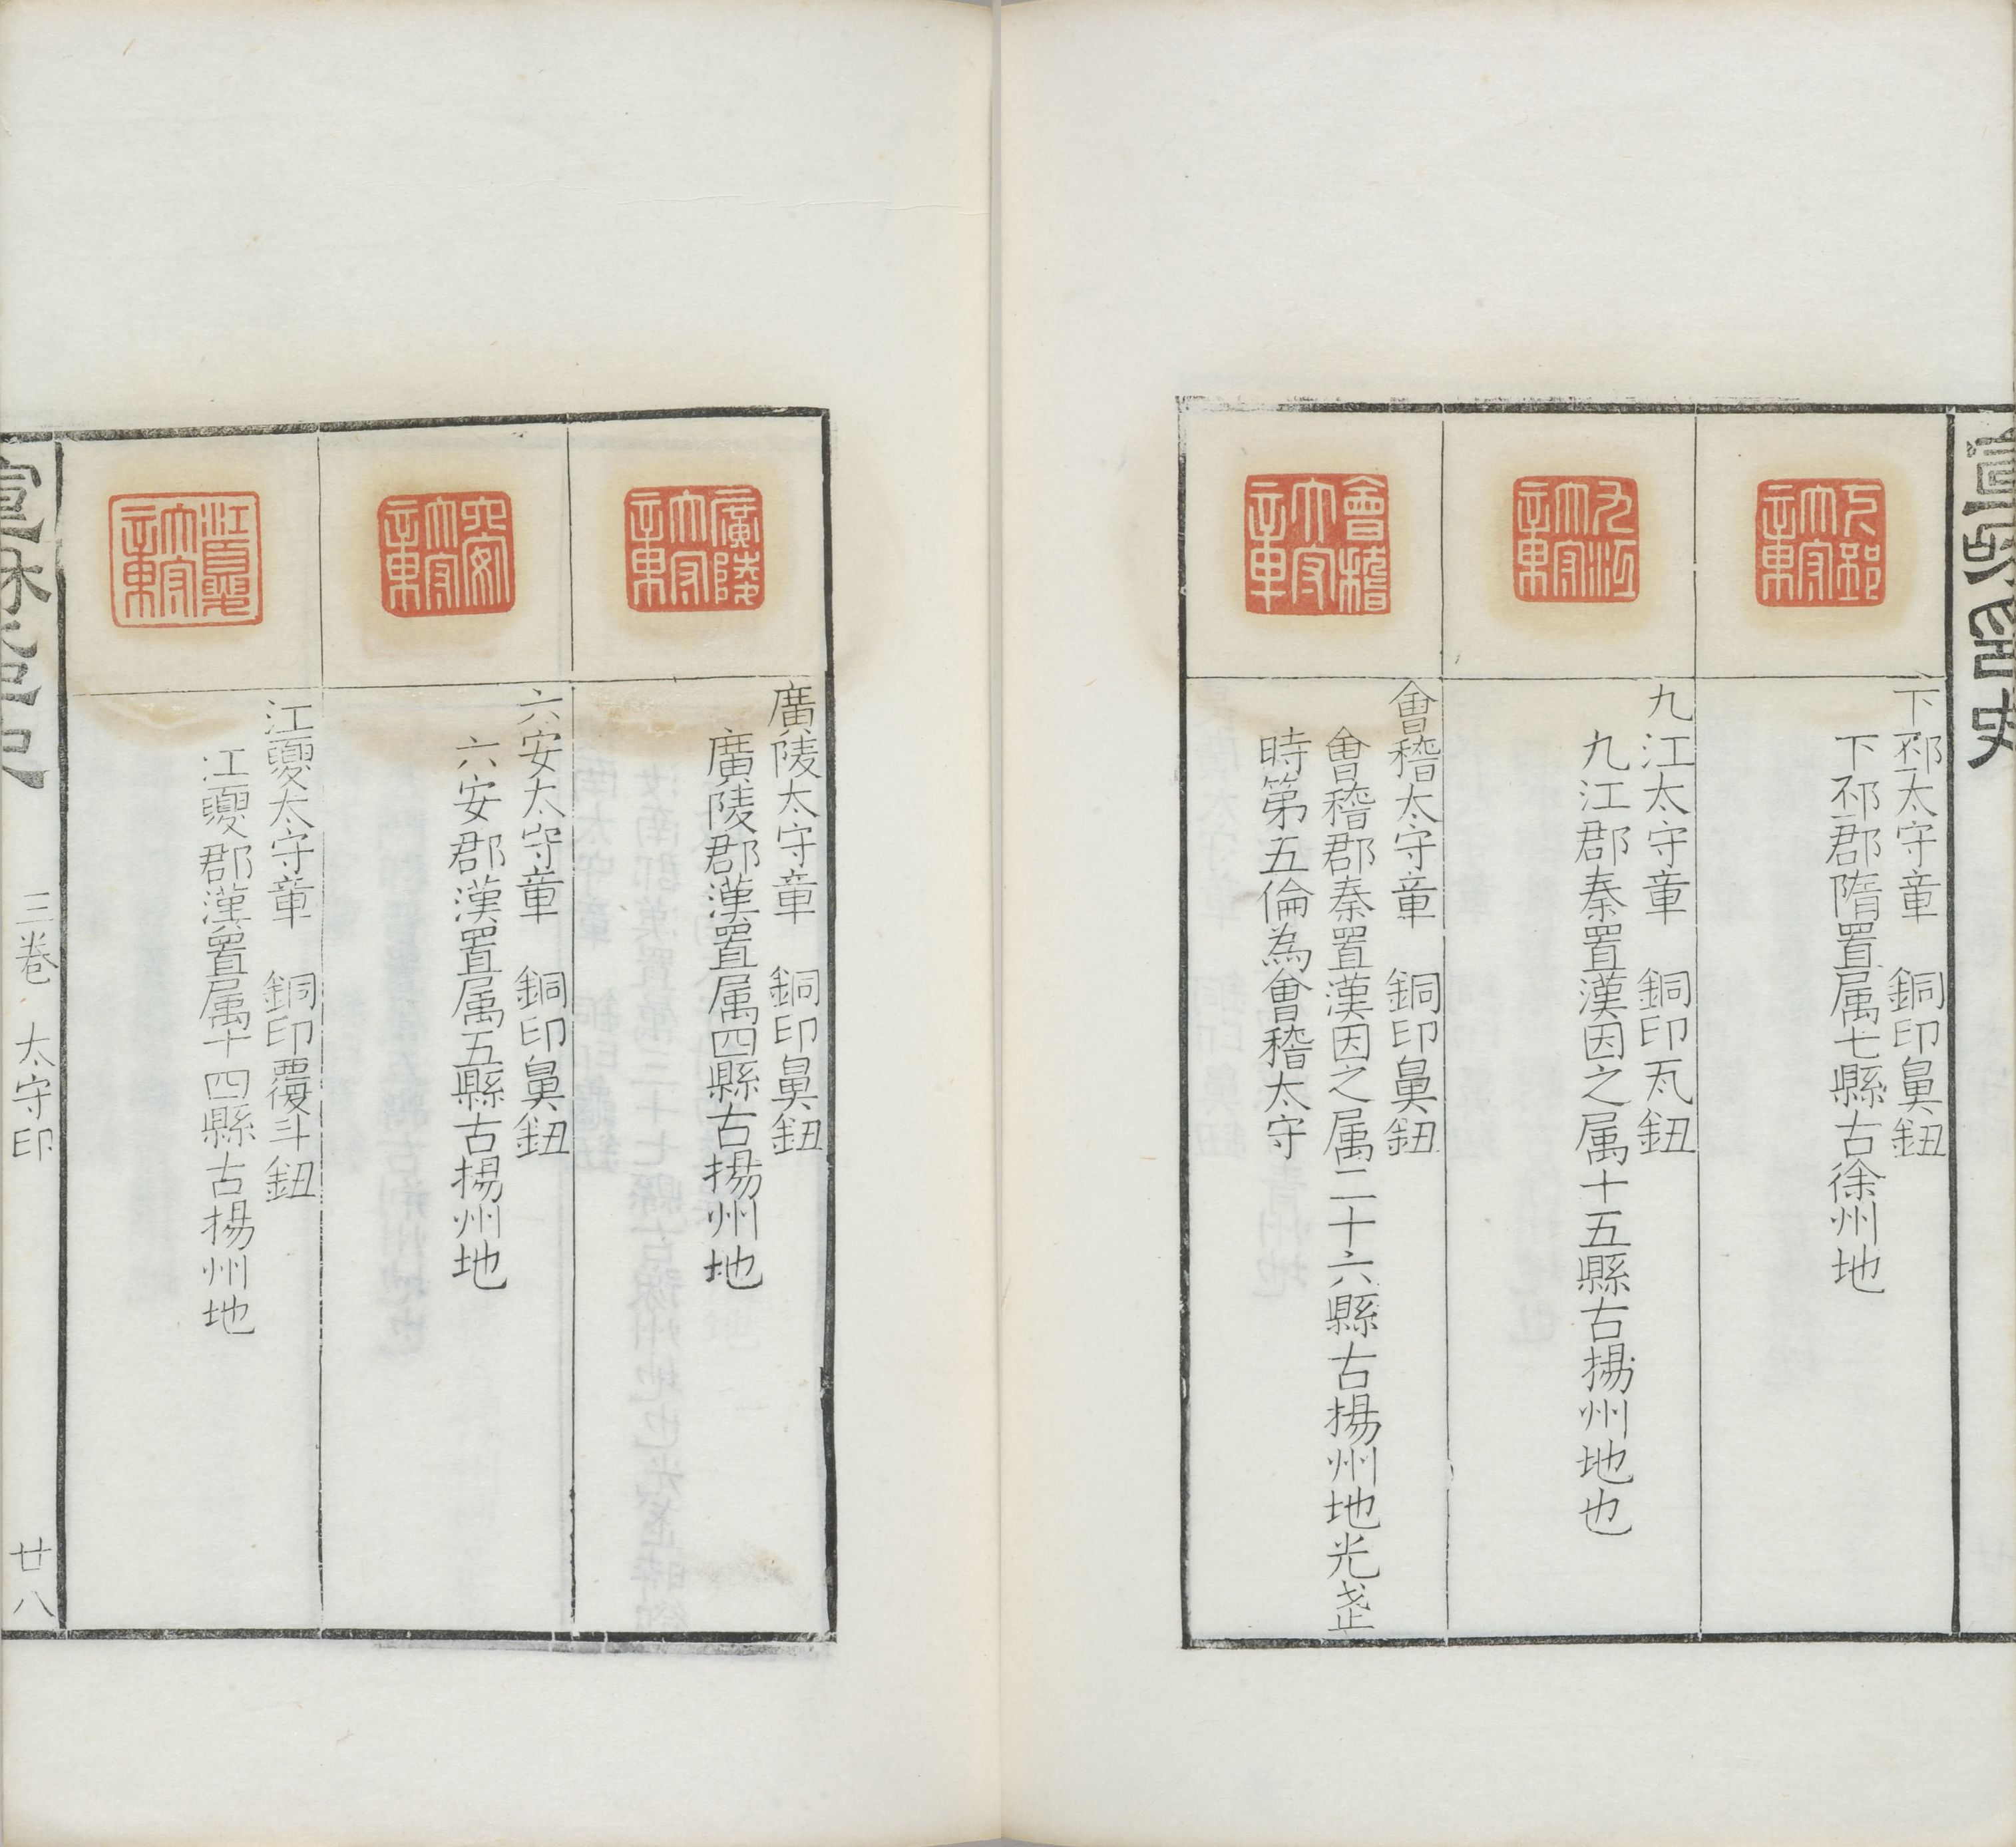 下邳太守章
下邳太守章　銅印鼻鈕
下邳郡隋置属七縣古徐州地
九江太守章
九江太守章　銅印瓦鈕
九江郡秦置漢因之属十五縣古揚州地也
會稽太守章
會稽太守章　銅印鼻鈕
會稽郡秦置漢因之属二十六縣古揚州地光武
時第五倫為會稽太守
廣陵太守章
廣陵太守章　銅印鼻鈕
廣陵郡漢置属四縣古揚州地
六安太守章
六安太守章　銅印鼻鈕
六安郡漢置属五縣古揚州地
江夏太守章
江夏太守章　銅印覆斗鈕
江夏郡漢置属十四縣古揚州地
三卷　太守印　廿八